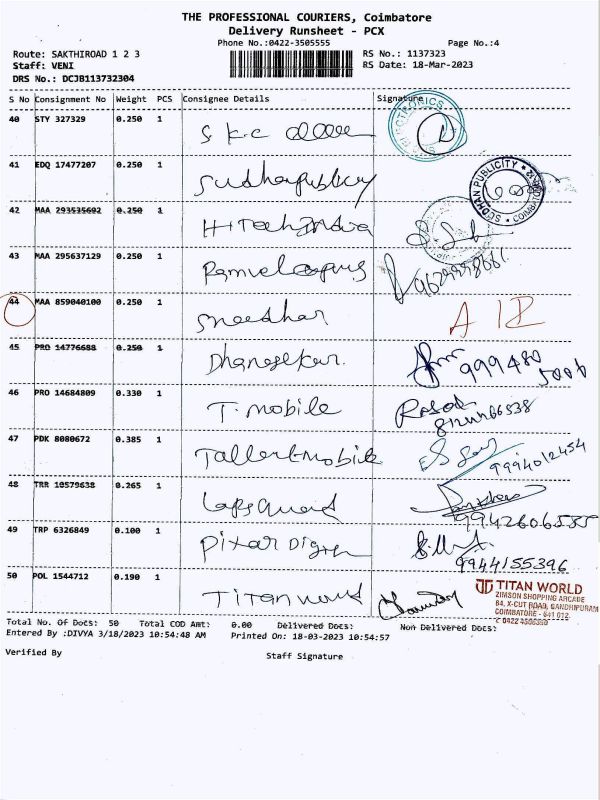 THE PROFESSIONAL COURIERS, Coimbatore
Delivery Runsheet - PCX
Phone No.:0422-3505555 Page No.:4
Route: SAKTHIROAD 1 2 3 RS No.: 1137323
Staff: VENI RS Date: 18-Mar-2023
DRS No.: DCJB113732304
S No Consignment No Weight PCS Consignee Details Signature
40 STY 327329 0.250 1 S K C
ELECTRONICS
41 EDQ 17477207 0.250 1 Sudhanpublicity
SUDHAN PUBLICITY COIMBATORE
42 MAA 293535602 0.250 1 Hitech India
43 MAA 295637129 0.250 1
44 MAA 859040100 0.250 1 Sreedhar
45 PRO 14776688 0.250 1 Dhanasekar. 999480
5006
46 PRO 14684809 0.330 1 T. mobile
47 PDK 8080672 0.385 1 Tallent mobile 9994012454
48 TRR 10579638 0.265 1 9942606555
49 TRP 6326849 0.100 1 Pixar Digital 9944155396
50 POL 1544712 0.190 1 Titan world
TITAN WORLD
ZIMSON SHOPPING ARCADE
64, X-CUT ROAD, GANDHIPURAM
COIMBATORE - 641 012.
Total No. Of Docs: 50 Total COD Amt: 0.00 Delivered Docs: Non Delivered Docs:
Entered By :DIVYA 3/18/2023 10:54:48 AM Printed On: 18-03-2023 10:54:57
Verified By Staff Signature